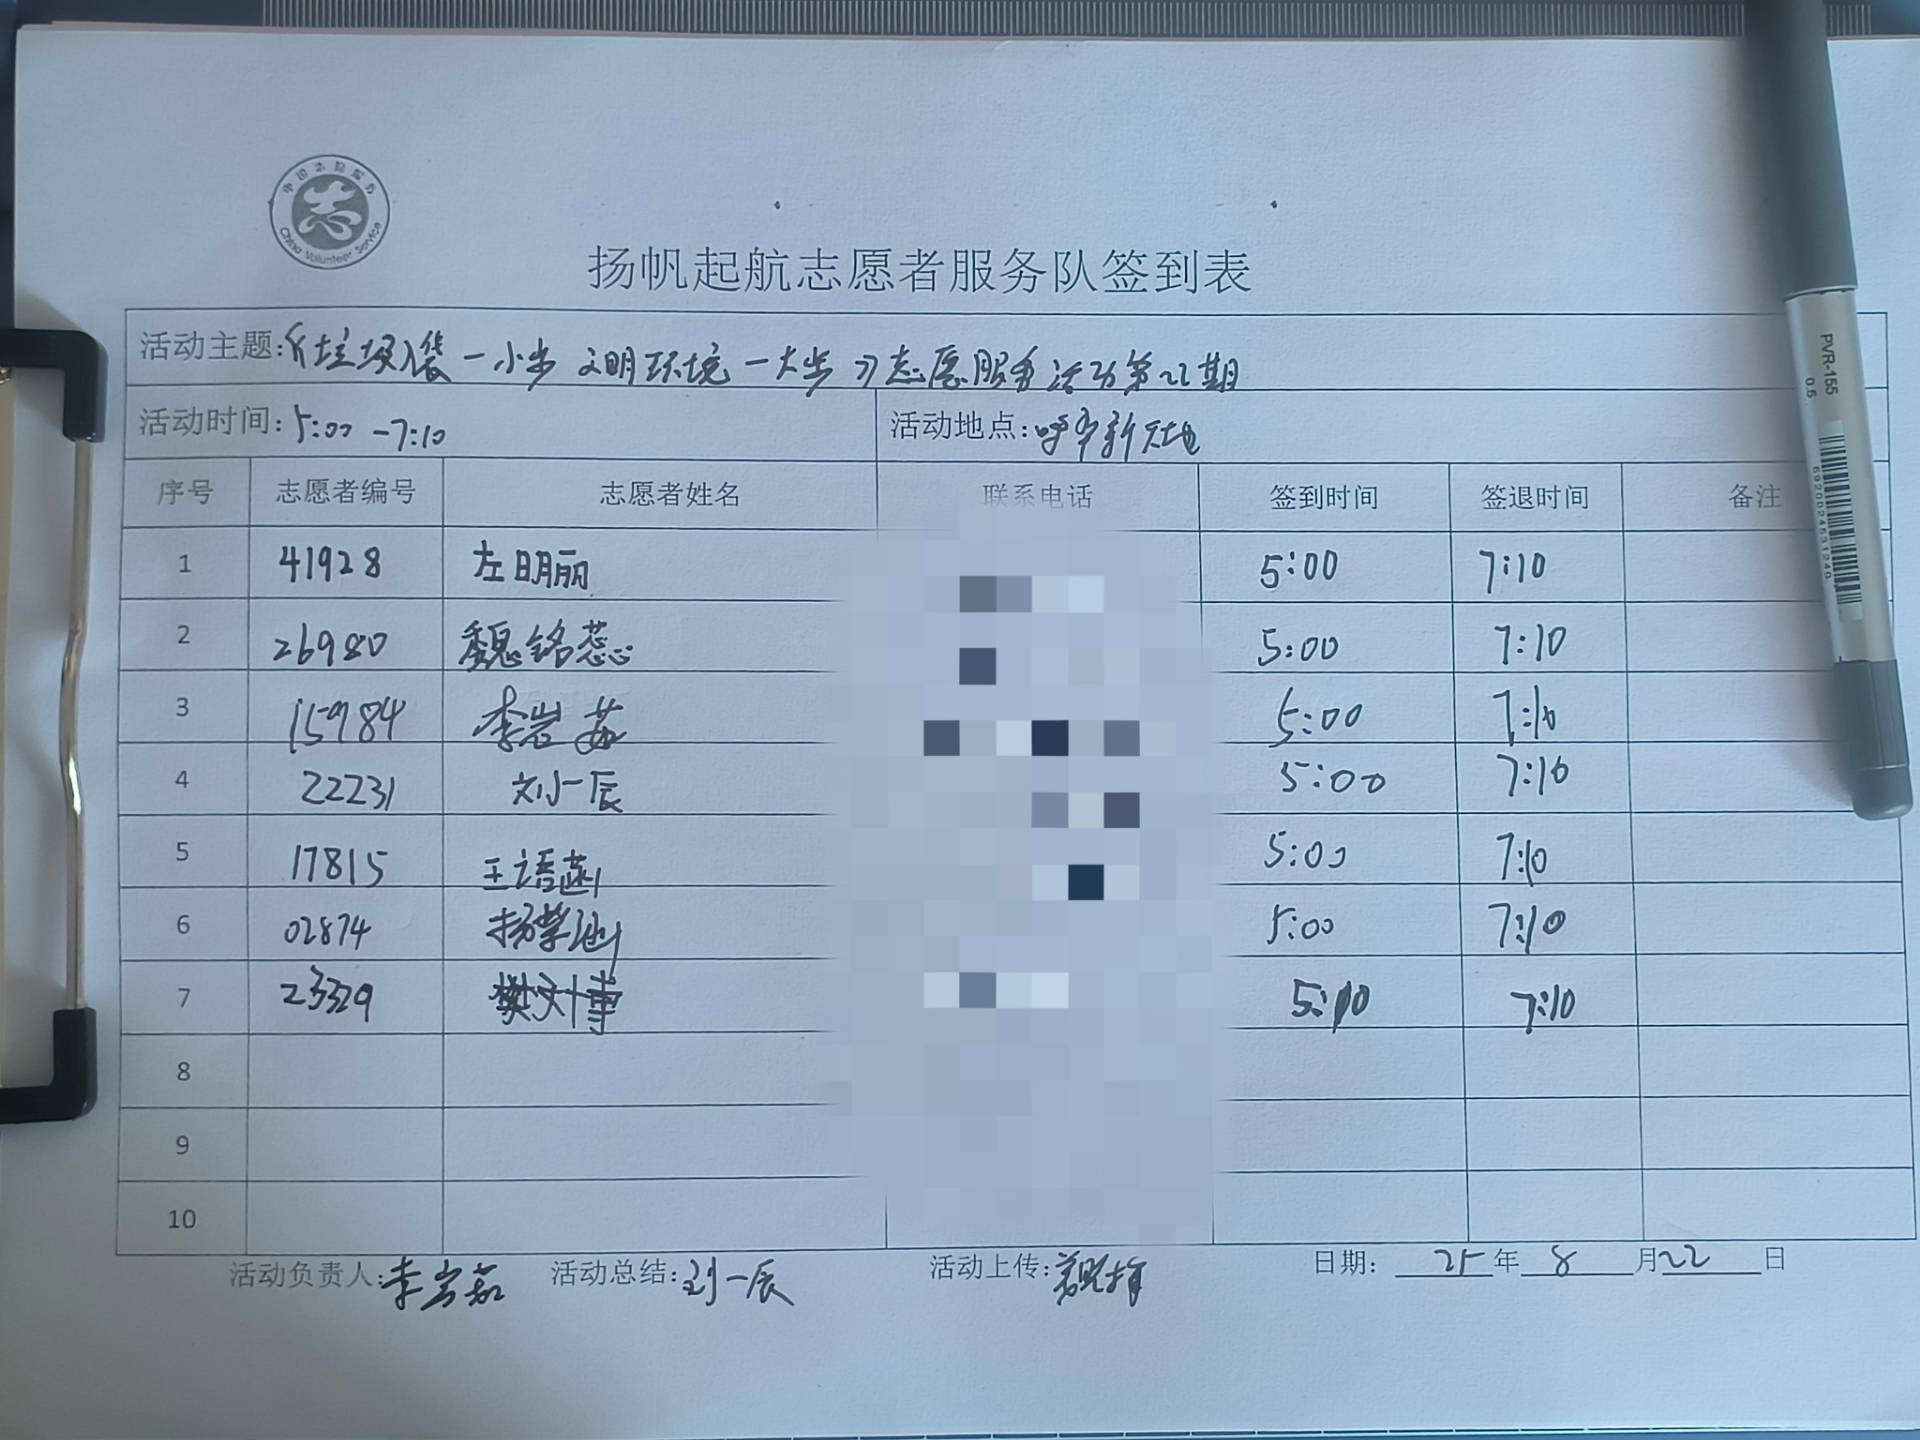 中国志愿服务
China Volunteer Service
扬帆起航志愿者服务队签到表
活动主题:《垃圾入袋一小步 文明环境一大步》志愿服务活动第22期
活动时间:5:00-7:10 活动地点:新天地
序号 志愿者编号 志愿者姓名 联系电话 签到时间 签退时间 备注
1 41928 左明丽 5:00 7:10
2 26980 魏铭蕊 5:00 7:10
3 15984 李岩茹 5:00 7:10
4 22231 刘一辰 5:00 7:10
5 17815 王语菡 5:00 7:10
6 02874 杨紫涵 5:00 7:10
7 23329 樊文博 5:10 7:10
8
9
10
活动负责人:李岩茹 活动总结:刘一辰 活动上传: 日期: 25年 8 月22 日
PVR-155
0.5
69200024531240